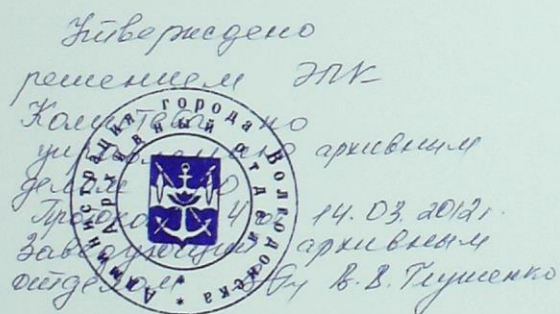 Утверждено
решением ЭПК
Комитета по
управлению архивным
делом РО
Протокол 4 от 14.03.2012г.
Заведующий архивным
отделом В.В. Глушенко
Администрация города Волгодонска
Архивный отдел